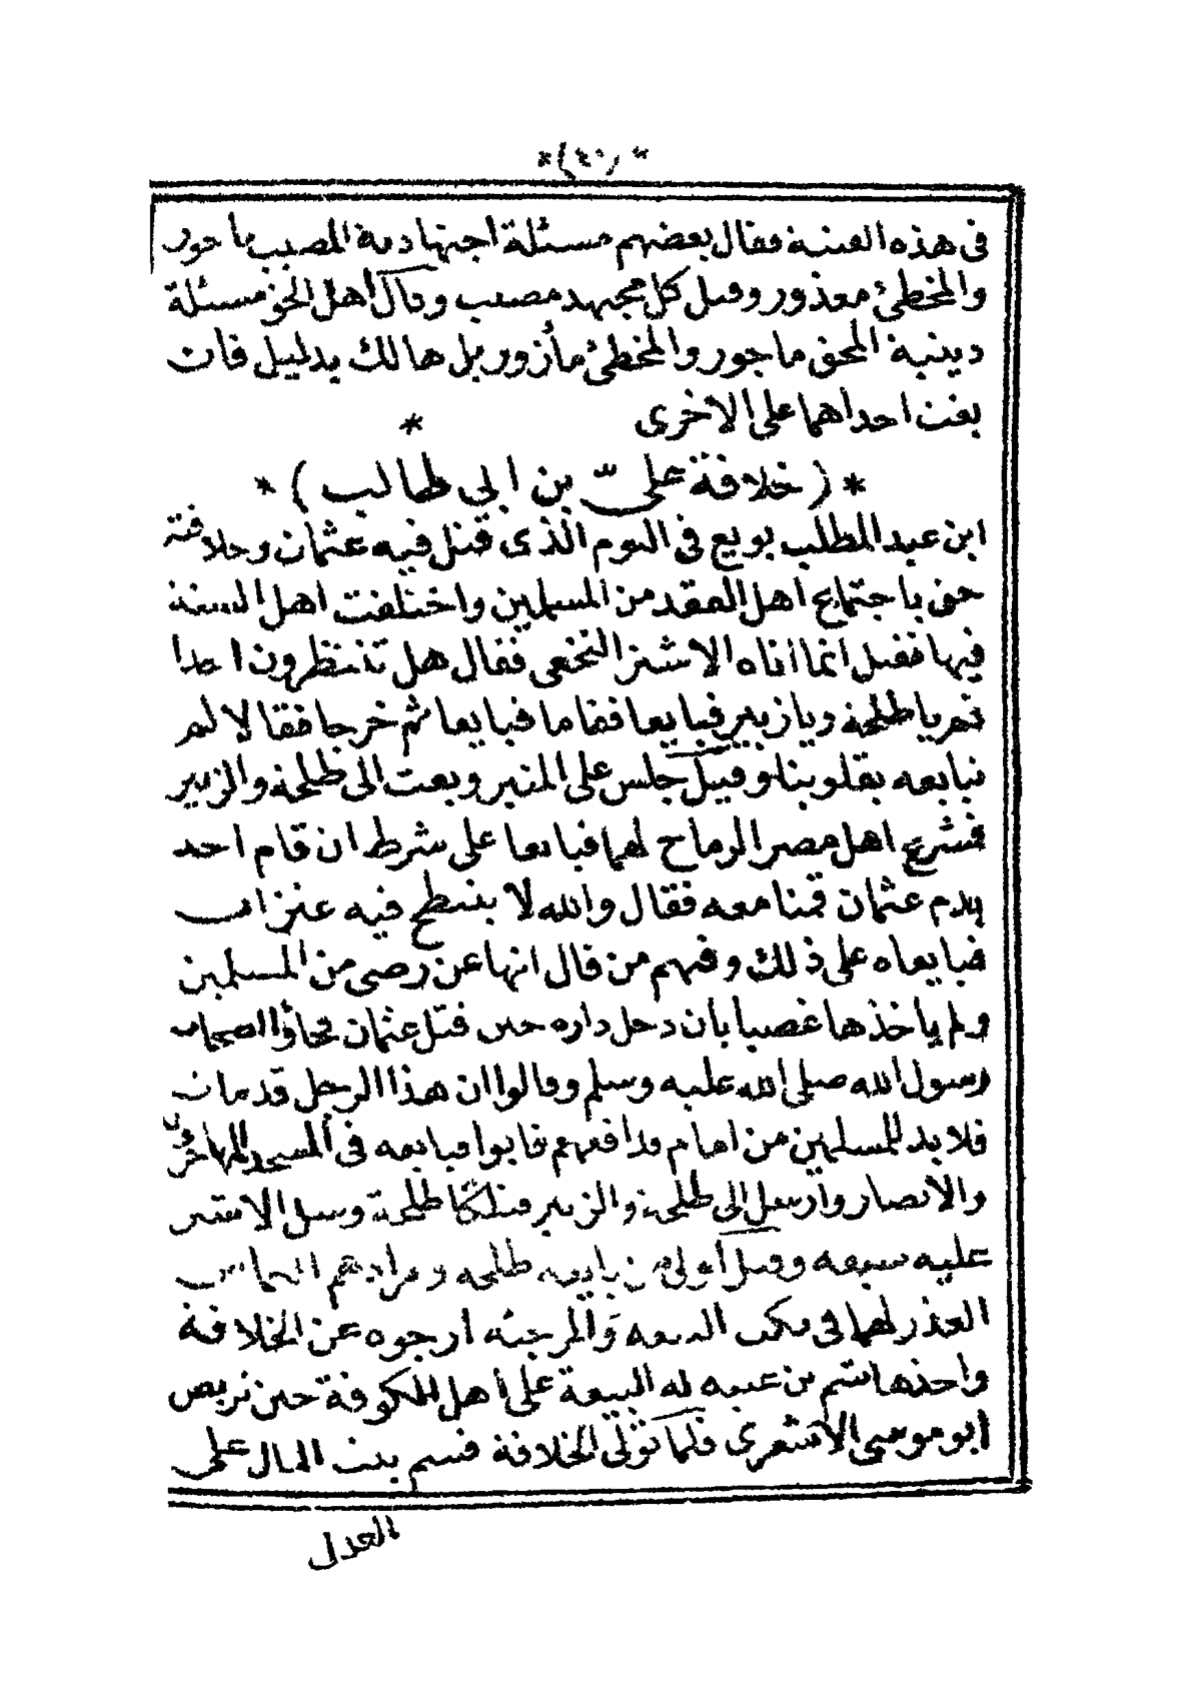 *(٤٠)*
فى هذه الفتنة فقال بعضهم مسئلة اجتهادية المصيب ماجور
والمخطئ معذور وقيل كل مجتهد مصيب وقال أهل الحق مسئلة
دينية المحق ماجور والمخطئ مأزور بل هالك بدليل فان
بغت احداهما على الاخرى *
*( خلافة علىّ بن ابى طالب )*
ابن عبد المطلب بويع فى اليوم الذى قتل فيه عثمان وخلافته
حق باجتماع اهل العقد من المسلمين واختلفت اهل السنة
فيها فقيل انما اتاه الاشتر النخعى فقال هل تنتظرون احدا
قم يا طلحة ويا زبير فبايعا فقاما فبايعا ثم خرجا فقالا لم
نبايعه بقلوبنا وقيل جلس على المنبر وبعث الى طلحة والزبير
فشرع اهل مصر الرماح لهما فبايعا على شرط ان قام احد
بدم عثمان قمنا معه فقال والله لا ينتطح فيه عنزان
فبايعاه على ذلك وفهم من قال انها عن رضى من المسلمين
ولم ياخذها غصبا بان دخل داره حين قتل عثمان فجاؤا اصحاب
رسول الله صلى الله عليه وسلم وقالوا ان هذا الرجل قد مات
فلا بد للمسلمين من امام فبايعه فى المسجد المهاجرون
والانصار وأرسل الى طلحة والزبير فتلكّا طلحة وسل الاشتر
عليه سيفه وقيل أول من بايعه طلحه ومرادهم التماس
العذر لهما فى نكث البيعه والمرجئه ارجوه عن الخلافة
واخذ هاشم بن عتبه له البيعة على أهل الكوفة حين تربص
ابو موسى الاشعرى فلما تولى الخلافة قسم بيت المال على
العدل